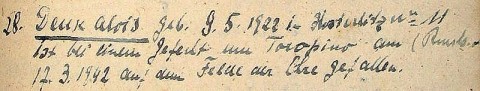 28. Denk Alois geb. 9.5.1922 in Nr. 11
Ist bei einem Gefecht um Toropino am (Russl.
17.3.1942 auf dem Felde der Ehre gefallen.